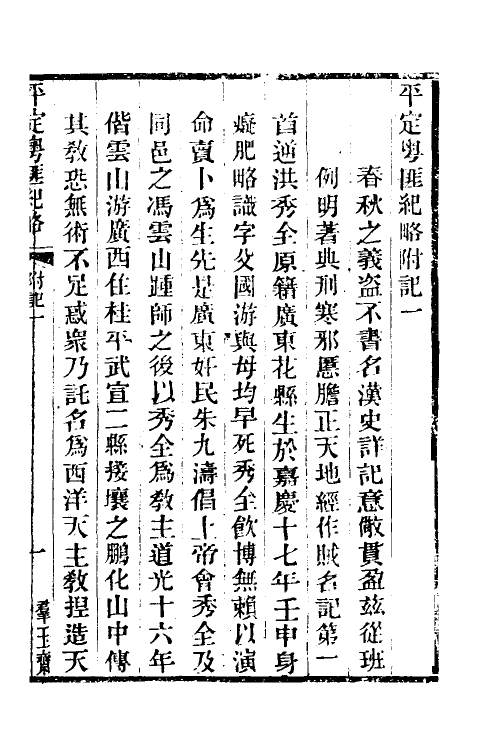 平定粵匪紀略附記一
春秋之義盜不書名漢史詳記意儆貫盈茲從班
例明著典刑寒邪慝膽正天地經作賊名記第一
首逆洪秀全原籍廣東花縣生於嘉慶十七年壬申身
癡肥略識字父國游與母均早死秀全飲博無賴以演
命賣卜為生先是廣東奸民朱九濤倡上帝會秀全及
同邑之馮雲山踵師之後以秀全為教主道光十六年
偕雲山游廣西在桂平武宣二縣接壤之鵬化山中傳
其教恐無術不足惑衆乃託名為西洋天主教捏造天
平定粵匪紀略 附記一 一 羣玉齋